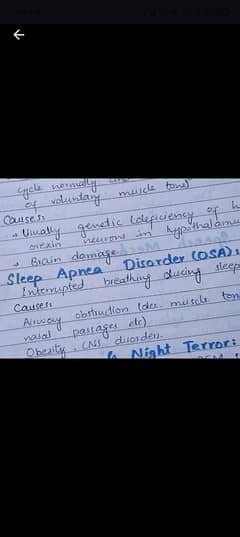 cycle normally
of voluntary muscle tone)
Causes:
→ Usually genetic (deficiency of
orexin neurons in hypothalamus
→ Brain damage
Sleep Apnea Disorder (OSA):
Interrupted breathing during sleep
Causes:
Airway obstruction (dec. muscle ton
nasal passages etc)
Obesity, CNS disorders.
Night Terror: